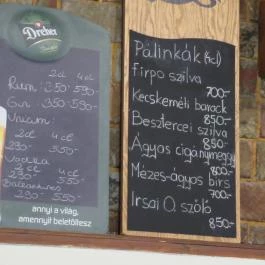 Dreher
2cl 4cl
Rum: 350 590-
Gin: 350-590-
Unicum:
2cl 4cl
290- 550-
Vodka
2cl 4cl
290- 550-
290- 550-
annyi a világ,
amennyit beletöltesz
Pálinkák (4cl)
Firpo szilva
700-
Kecskeméti barack
850-
Besztercei szilva
850-
Ágyas cigánymeggy
800-
Mézes-ágyas birs
700-
Irsai O. szőlő
850-